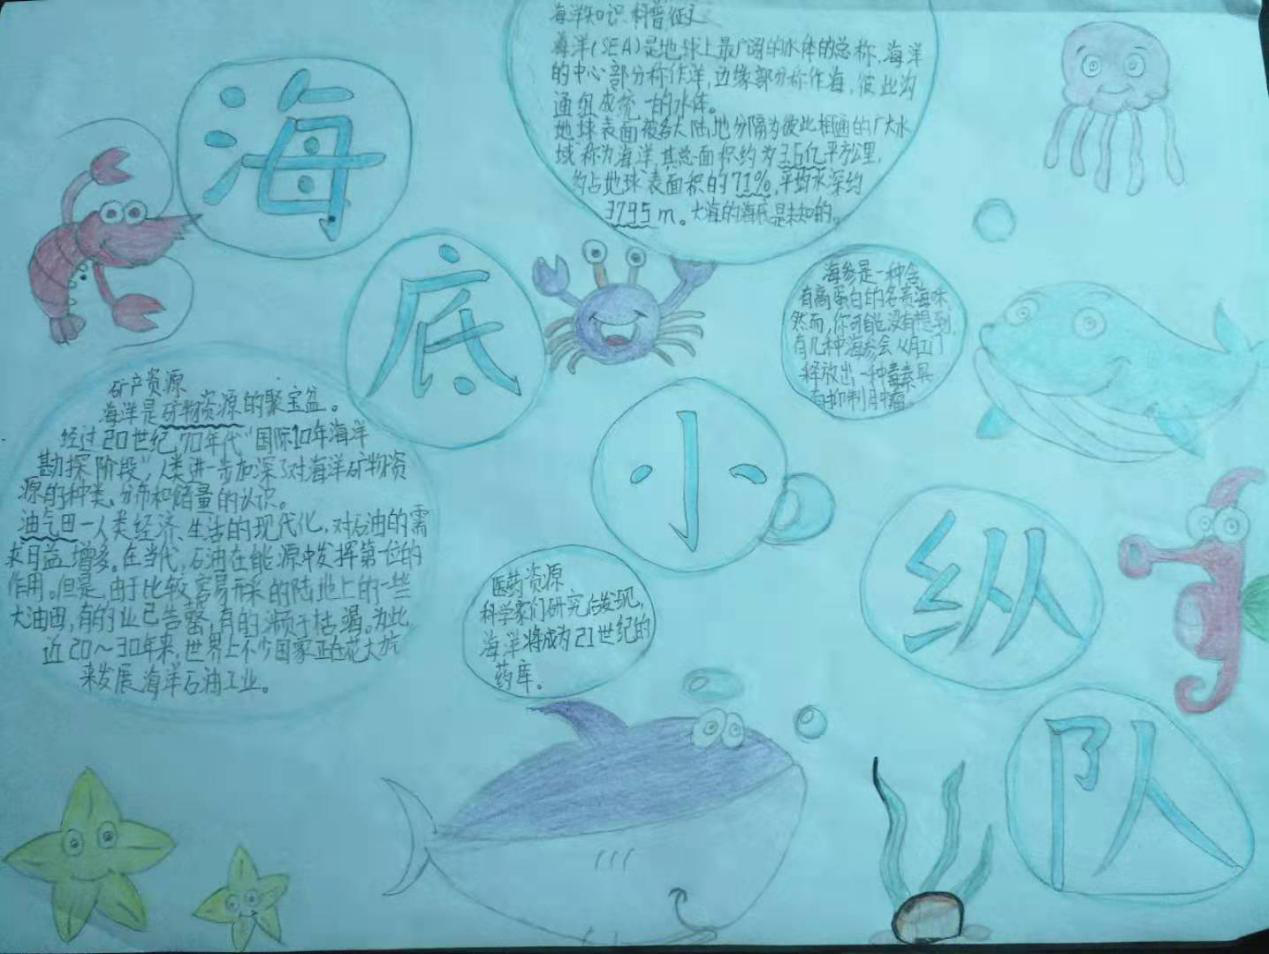 海
底
小
纵
队
海洋知识 科普征文
海洋(SEA)是地球上最广阔的水体的总称.海洋
的中心部分称作洋,边缘部分称作海,彼此沟
通组成统一的水体。
地球表面被各大陆地分隔为彼此相通的广大水
域称为海洋,其总面积约为3.6亿平方公里,
约占地球表面积的71%,平均水深约
3795m。大海的海底是未知的。
海参是一种含
有高蛋白的名贵海味
然而,你可能没有想到,
有几种海参会从肛门
释放出一种毒素具
而抑制肿瘤
矿产资源
海洋是矿物资源的聚宝盆。
经过20世纪,70年代“国际10年海洋
勘探阶段”,人类进一步加深了对海洋矿物资
源的种类、分布和储量的认识。
油气田—人类经济、生活的现代化,对石油的需
求日益增多。在当代,石油在能源中发挥第一位的
作用。但是,由于比较容易开采的陆地上的一些
大油田,有的业已告罄,有的濒于枯竭。为此
近20～30年来,世界上不少国家正在花大
来发展海洋石油工业。
医药资源
科学家们研究后发现,
海洋将成为21世纪的
药库。